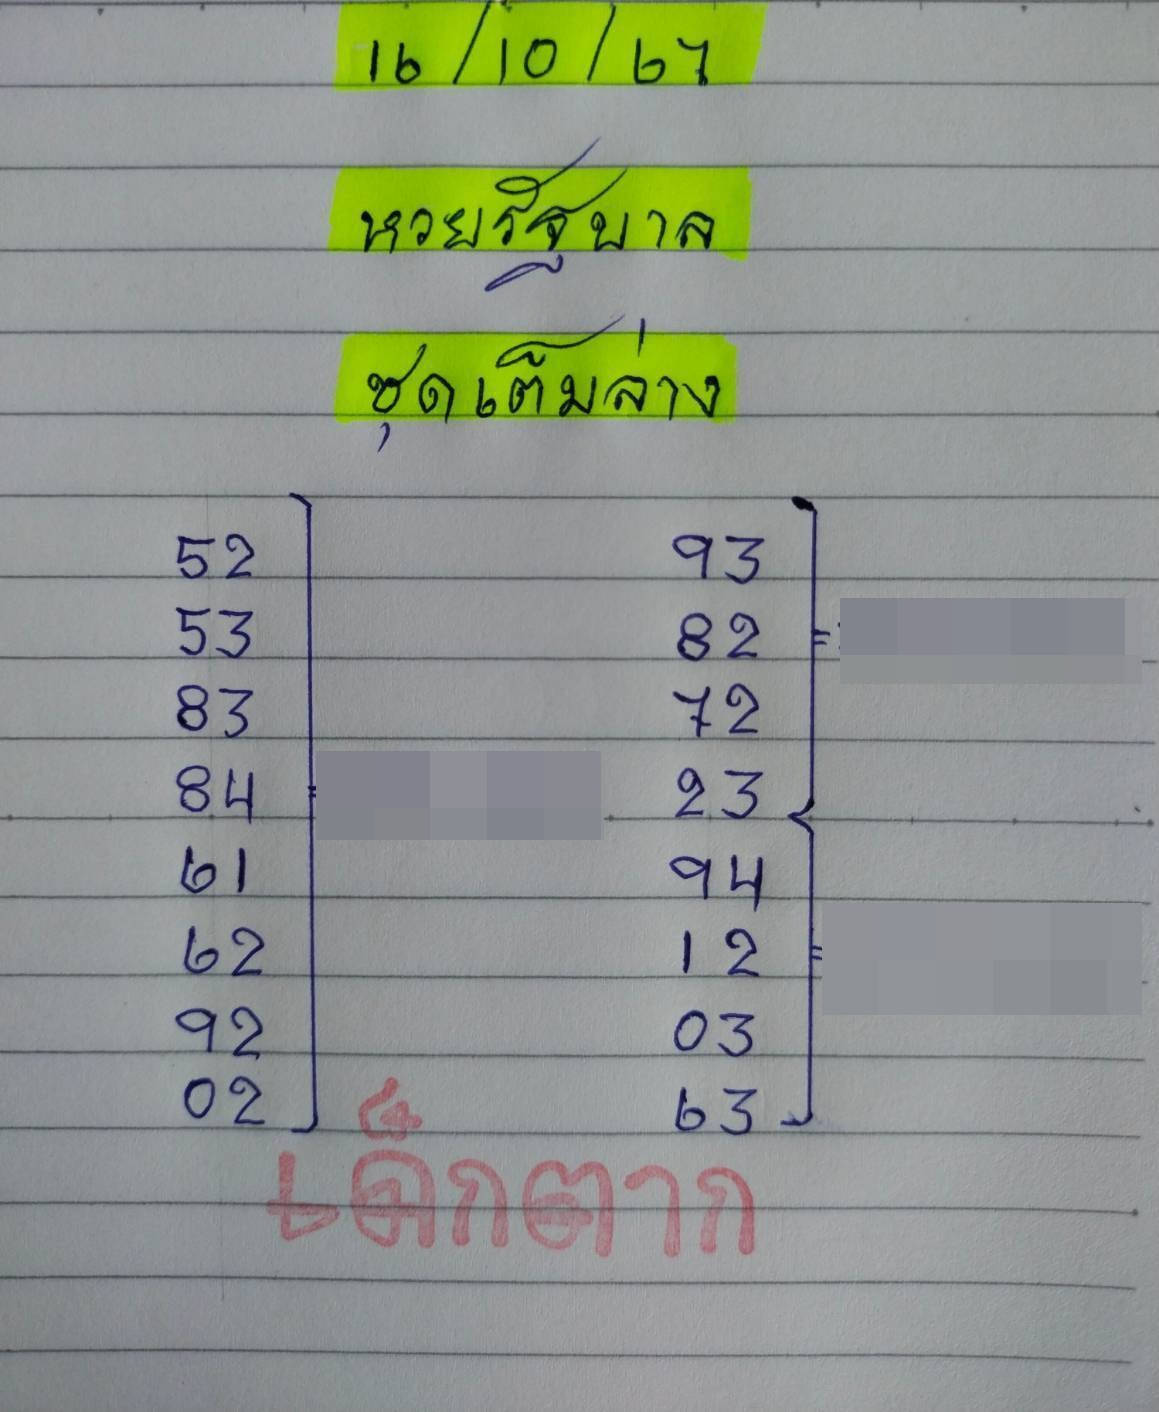 16/10/67
หวยรัฐบาล
ชุดเต็มล่าง
52 93
53 82 =
83 72
84 = 23
61 94
62 12 =
92 03
02 63
เด็กตาก